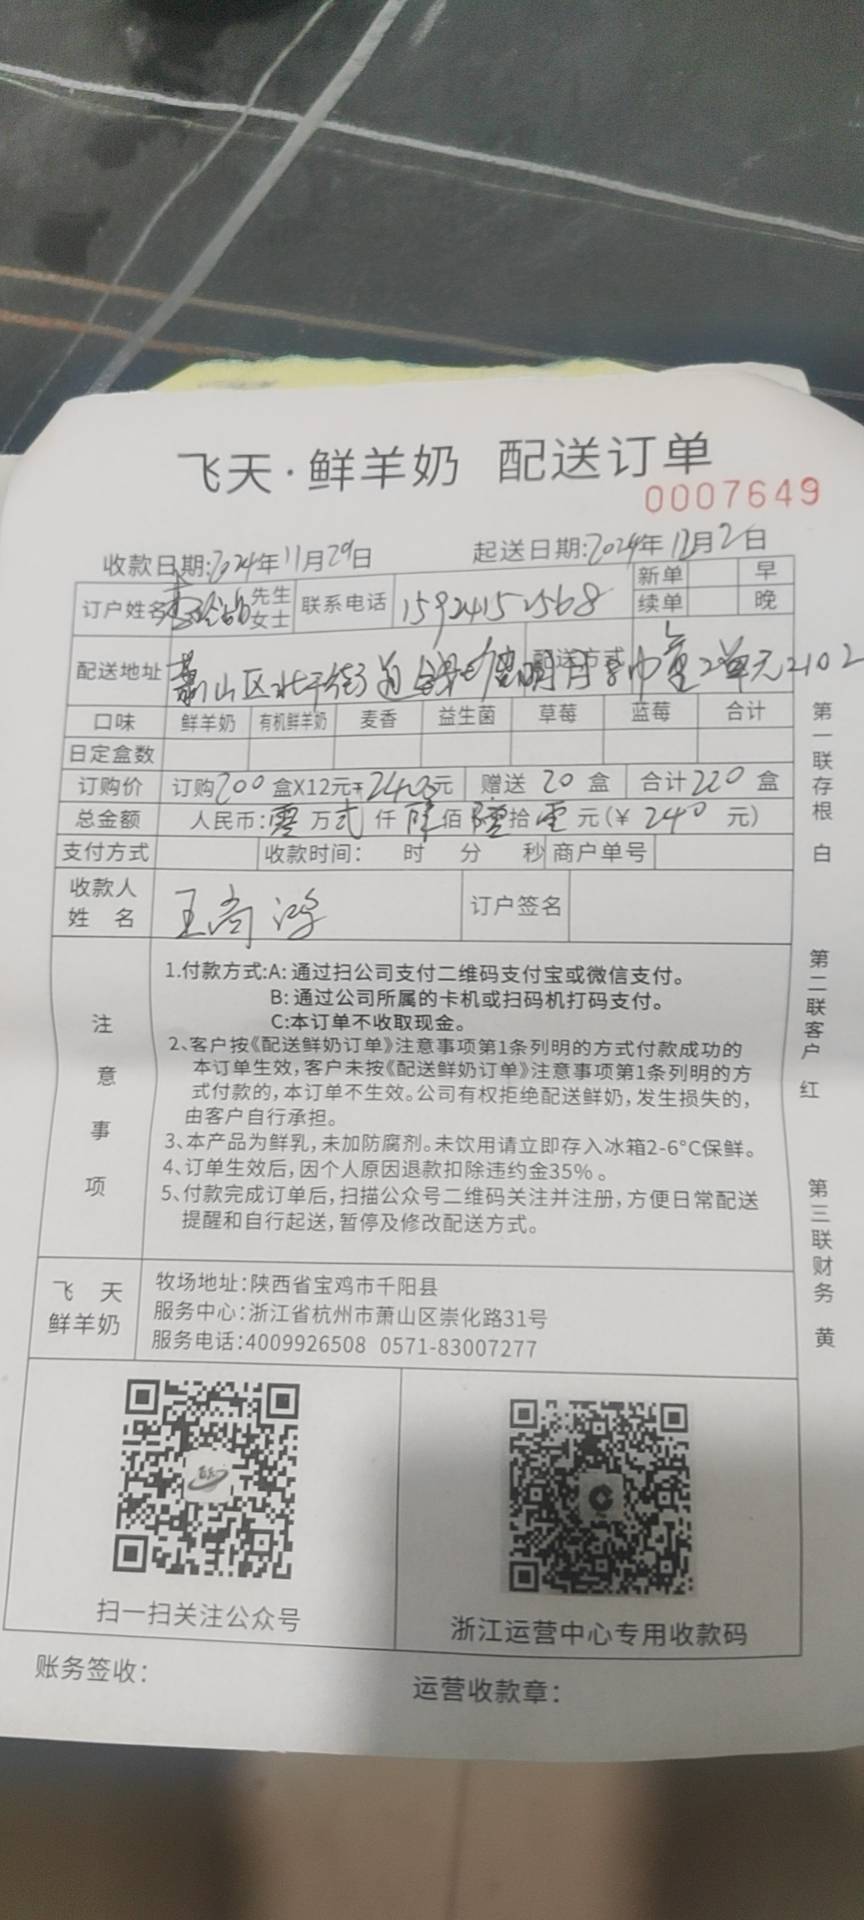 飞天·鲜羊奶 配送订单
0007649
收款日期:2024年11月29日 起送日期:2024年12月2日
订户姓名 李 先生 女士 联系电话 15924152568 新单 早
续单 晚
配送地址 萧山区北干街道 明月 2单元2102 配送方式
口味 鲜羊奶 有机鲜羊奶 麦香 益生菌 草莓 蓝莓 合计
日定盒数
订购价 订购200盒X12元=2400元 赠送 20 盒 合计220盒
总金额 人民币:零万贰仟 佰 拾 元(¥ 240 元)
支付方式 收款时间: 时 分 秒 商户单号
收款人姓名 王尚鸿 订户签名
注意事项
1.付款方式:A:通过扫公司支付二维码支付宝或微信支付。
B:通过公司所属的卡机或扫码机打码支付。
C:本订单不收取现金。
2、客户按《配送鲜奶订单》注意事项第1条列明的方式付款成功的
本订单生效,客户未按《配送鲜奶订单》注意事项第1条列明的方
式付款的,本订单不生效。公司有权拒绝配送鲜奶,发生损失的,
由客户自行承担。
3、本产品为鲜乳,未加防腐剂。未饮用请立即存入冰箱2-6°C保鲜。
4、订单生效后,因个人原因退款扣除违约金35%。
5、付款完成订单后,扫描公众号二维码关注并注册,方便日常配送
提醒和自行起送,暂停及修改配送方式。
飞天
鲜羊奶
牧场地址:陕西省宝鸡市千阳县
服务中心:浙江省杭州市萧山区崇化路31号
服务电话:4009926508 0571-83007277
扫一扫关注公众号
浙江运营中心专用收款码
账务签收:
运营收款章:
第一联存根 白
第二联客户 红
第三联财务 黄